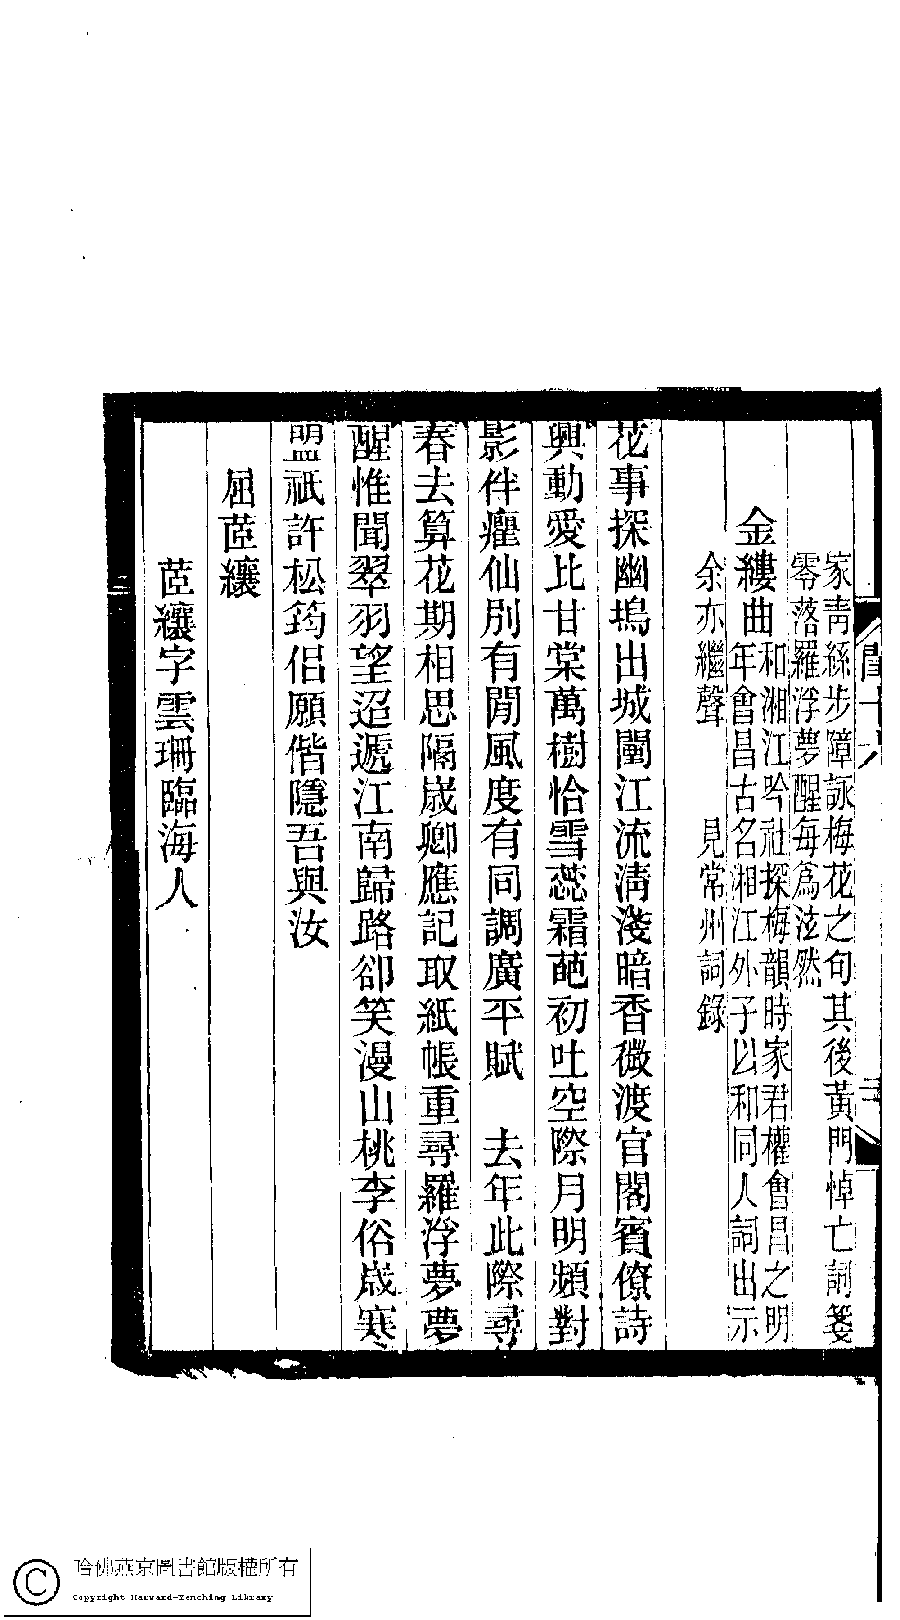 家靑絲步障詠梅花之句其後黃門悼亡詞箋
零落羅浮夢醒每爲泫然
金縷曲
和湘江吟社探梅韻時家君權會昌之明
年會昌古名湘江外子以和同人詞出示
余亦繼聲 見常州詞錄
花事探幽塢出城闉江流淸淺暗香微渡官閣賓僚詩
興動愛比甘棠萬樹恰雪蕊霜葩初吐空際月明頻對
影伴癯仙別有閒風度有同調廣平賦 去年此際尋
春去算花期相思隔歲卿應記取紙帳重尋羅浮夢夢
醒惟聞翠羽望迢遞江南歸路卻笑漫山桃李俗歲寒
盟祇許松筠侶願偕隱吾與汝
屈茝纕
茝纕字雲珊臨海人
閨十六
哈佛燕京圖書館版權所有
Copyright Harvard-Yenching Library